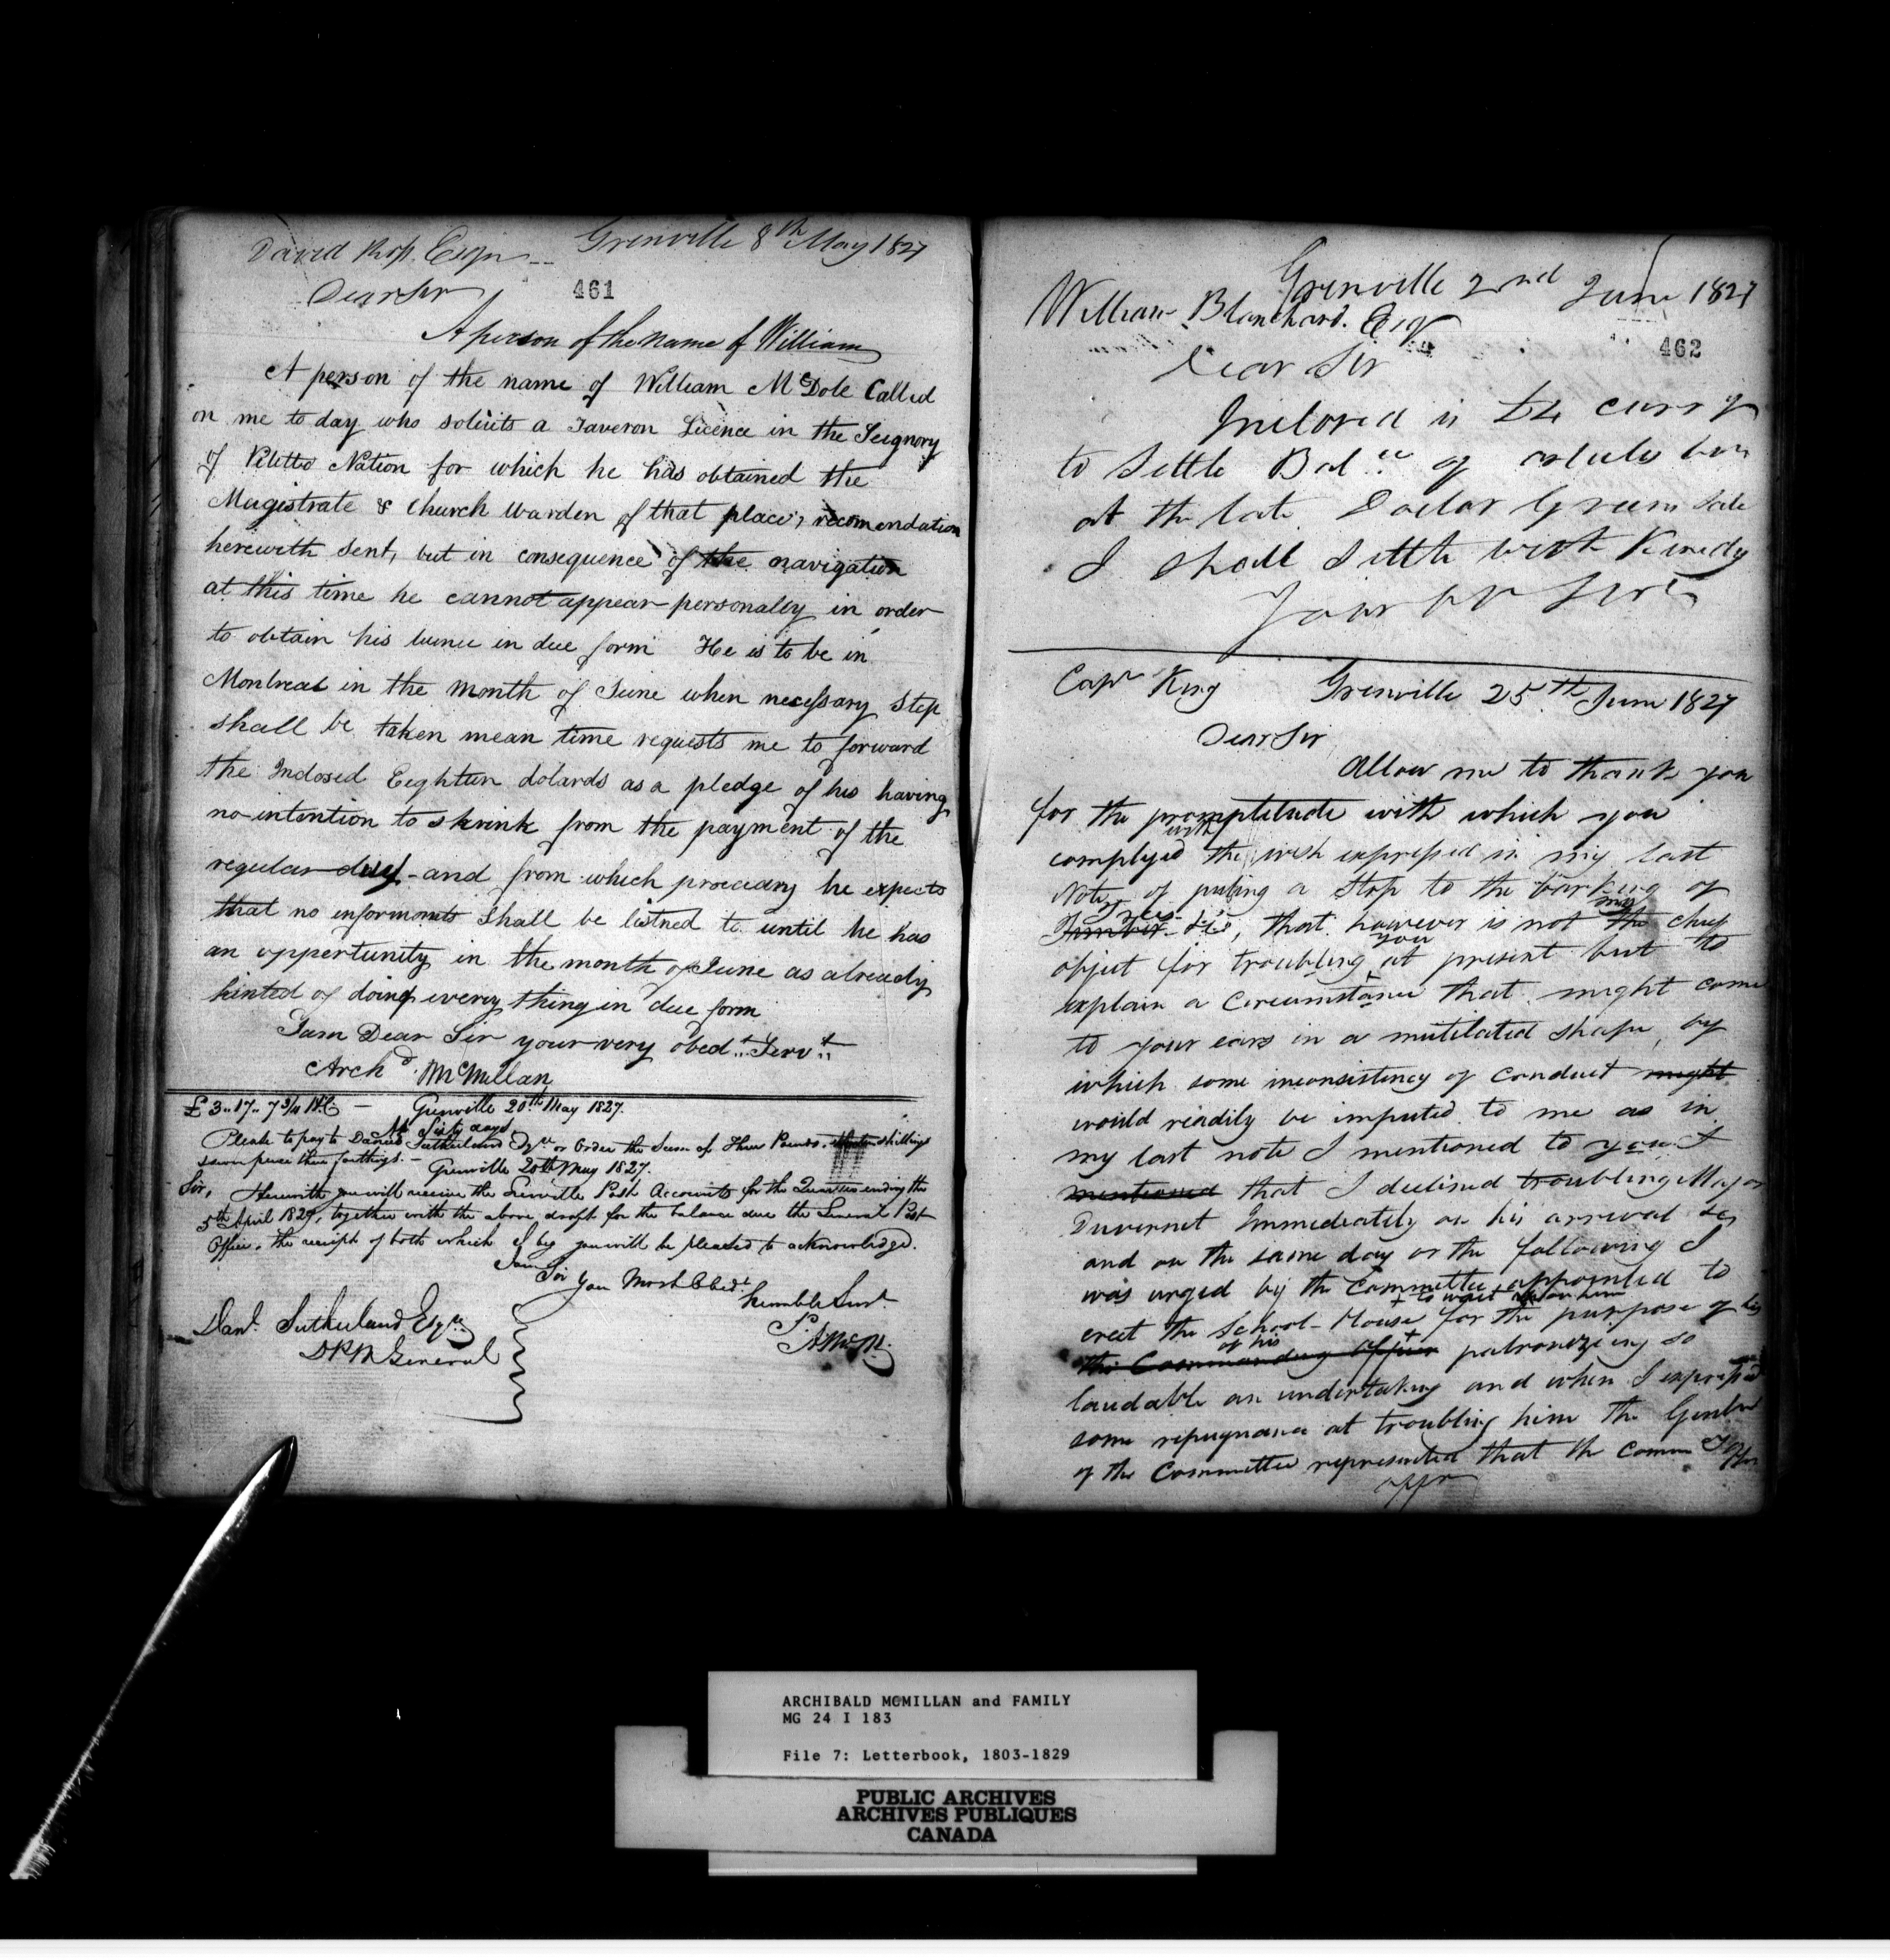 David Ross Esqr -- Grenville 8th May 1827
Dear Sir
461
A person of the name of William
A person of the name of William McDole Called
on me to day who solicits a Taveron Licence in the Seignory
of Petitto Nation for which he has obtained the
Magistrate & Church Warden of that place, recomendation
herewith sent, but in consequence of the navigation
at this time he cannot appear personally in order
to obtain his licence in due form He is to be in
Montreal in the month of June when necessary step
shall be taken mean time requests me to forward
the Inclosed Eighteen dolards as a pledge of his having
no intention to shrink from the payment of the
regular duty - and from which procedary he expects
that no informants shall be listned to until he has
an oppertunity in the month of June as already
hinted of doing every thing in due form
I am Dear Sir your very obedt.. Servt..
Archd. McMillan
£ 3..17..7 3/4 H.C. — Grenville 20th May 1827.
At Sixty days
Please to pay to Daniel Sutherland Esqre or Order the Sum of Three Pounds, shillings
seven pence three farthings. — Grenville 20th May 1827.
Sir, Herewith you will receive the Grenville Post Accounts for the Quarter ending the
5th April 1827, together with the above draft for the balance due the General Post
Office. the receipt of both which I beg you will be pleased to acknowledge.
I am
Sir Your Most Obedt
humble Servt.
Danl. Sutherland Esqre
D.P.M General
A McM.
Grenville 2nd June 1827
William Blanchard. Esqr
462
Dear Sir
Inclosed is £4 curry
to Settle Balce of articles bou
at the late Doctor Green Sale
I shall Settle with Kenedy
Your Servt
Capn King Grenville 25th June 1827
Dear Sir
Allow me to thank you
for the promptitude with which you
complyed with the wish expressed in my last
Note of puting a Stop to the barking of
Trees
Timber &c, that however is not the my cheif
object for troubling you at present but to
explain a Circumstance that might come
to your ears in a mutilated shape, by
which some inconsistency of conduct might
would readily be imputed to me as in
my last note I mentioned to you I
mentioned that I declined troubling Major
Duvernet Immediately on his arrival
and on the same day or the following I
was urged by the Committee appointed to
+ to wait upon him
erect the School-House for the purpose of his
of his +
the Commanding Officer patronizing so
laudable an undertaking and when I expressed
some repugnance at troubling him the Gentlm
of the Committee represented that the Comm
offr
ARCHIBALD McMILLAN and FAMILY
MG 24 I 183
File 7: Letterbook, 1803-1829
PUBLIC ARCHIVES
ARCHIVES PUBLIQUES
CANADA